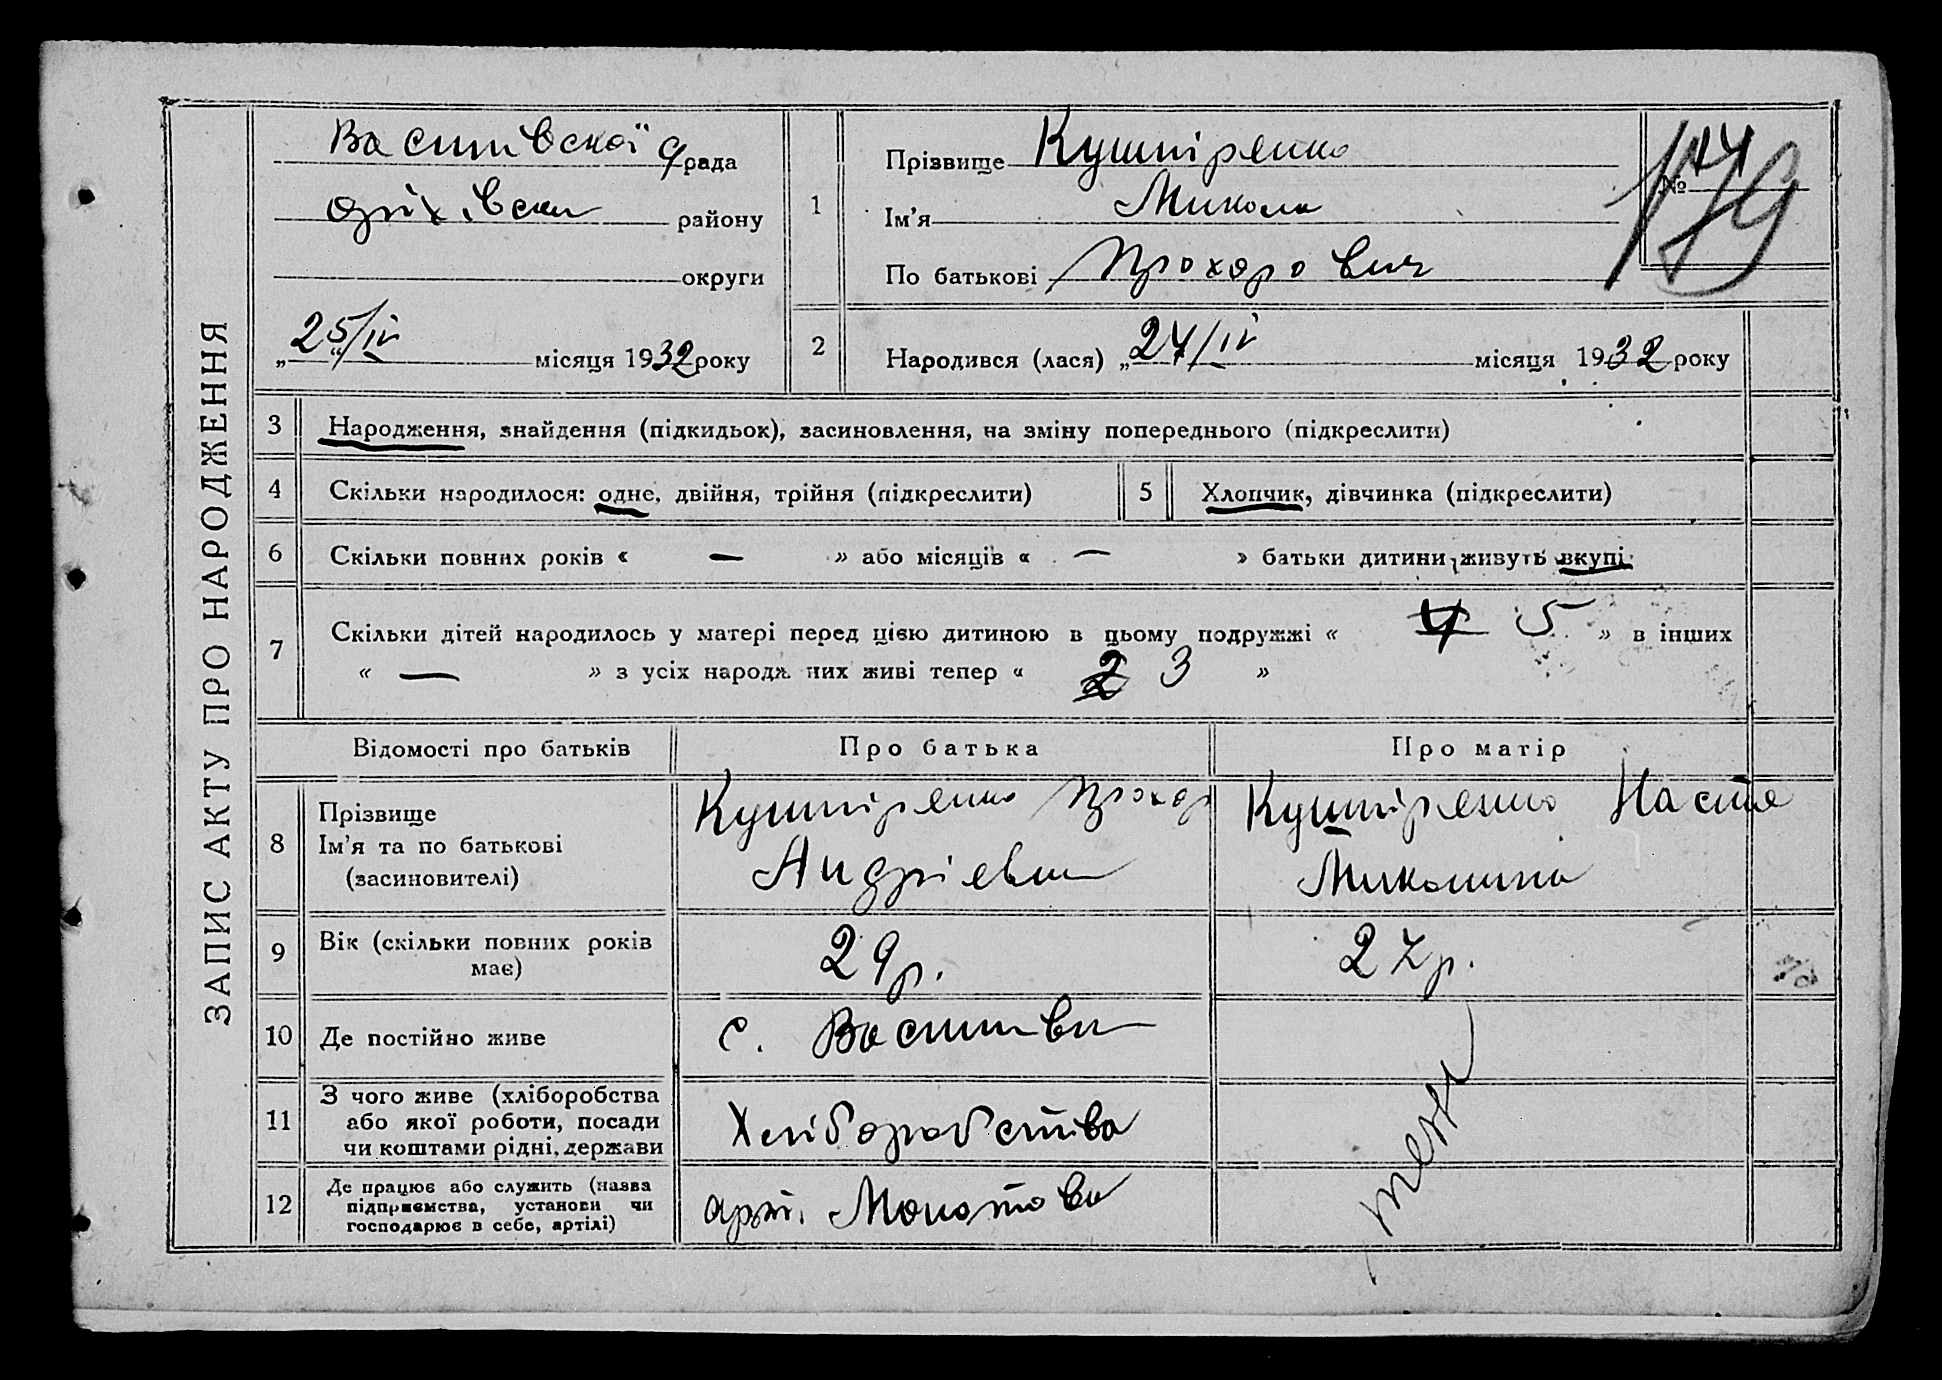 ЗАПИС АКТУ ПРО НАРОДЖЕННЯ
Василівської рада
оріхівськ району
округи
„25/IV“ місяця 1932 року
1
Прізвище Кушніренко
Ім'я Микола
По батькові Прохорович
№ 179
2
Народився (лася) „24/IV місяця 1932 року
3 Народження, знайдення (підкидьок), засиновлення, на зміну попереднього (підкреслити)
4 Скільки народилося: одне, двійня, трійня (підкреслити)
5 Хлопчик, дівчинка (підкреслити)
6 Скільки повних років « — » або місяців « — » батьки дитини живуть вкупі
7 Скільки дітей народилось у матері перед цією дитиною в цьому подружжі « 4 5 » в інших
« — » з усіх народж них живі тепер « 2 3 »
Відомості про батьків Про батька Про матір
8
Прізвище
Ім'я та по батькові
(засиновителі)
Кушніренко Прохор
Андрієвич
Кушніренко Настя
Миколина
9
Вік (скільки повних років
має)
29р.
27р.
10 Де постійно живе
с. Василівка
11
З чого живе (хліборобства
або якої роботи, посади
чи коштами рідні, держави
Хліборобства
теж
12
Де працює або служить (назва
підприємства, установи чи
господарює в себе, артілі)
арт. Молотова